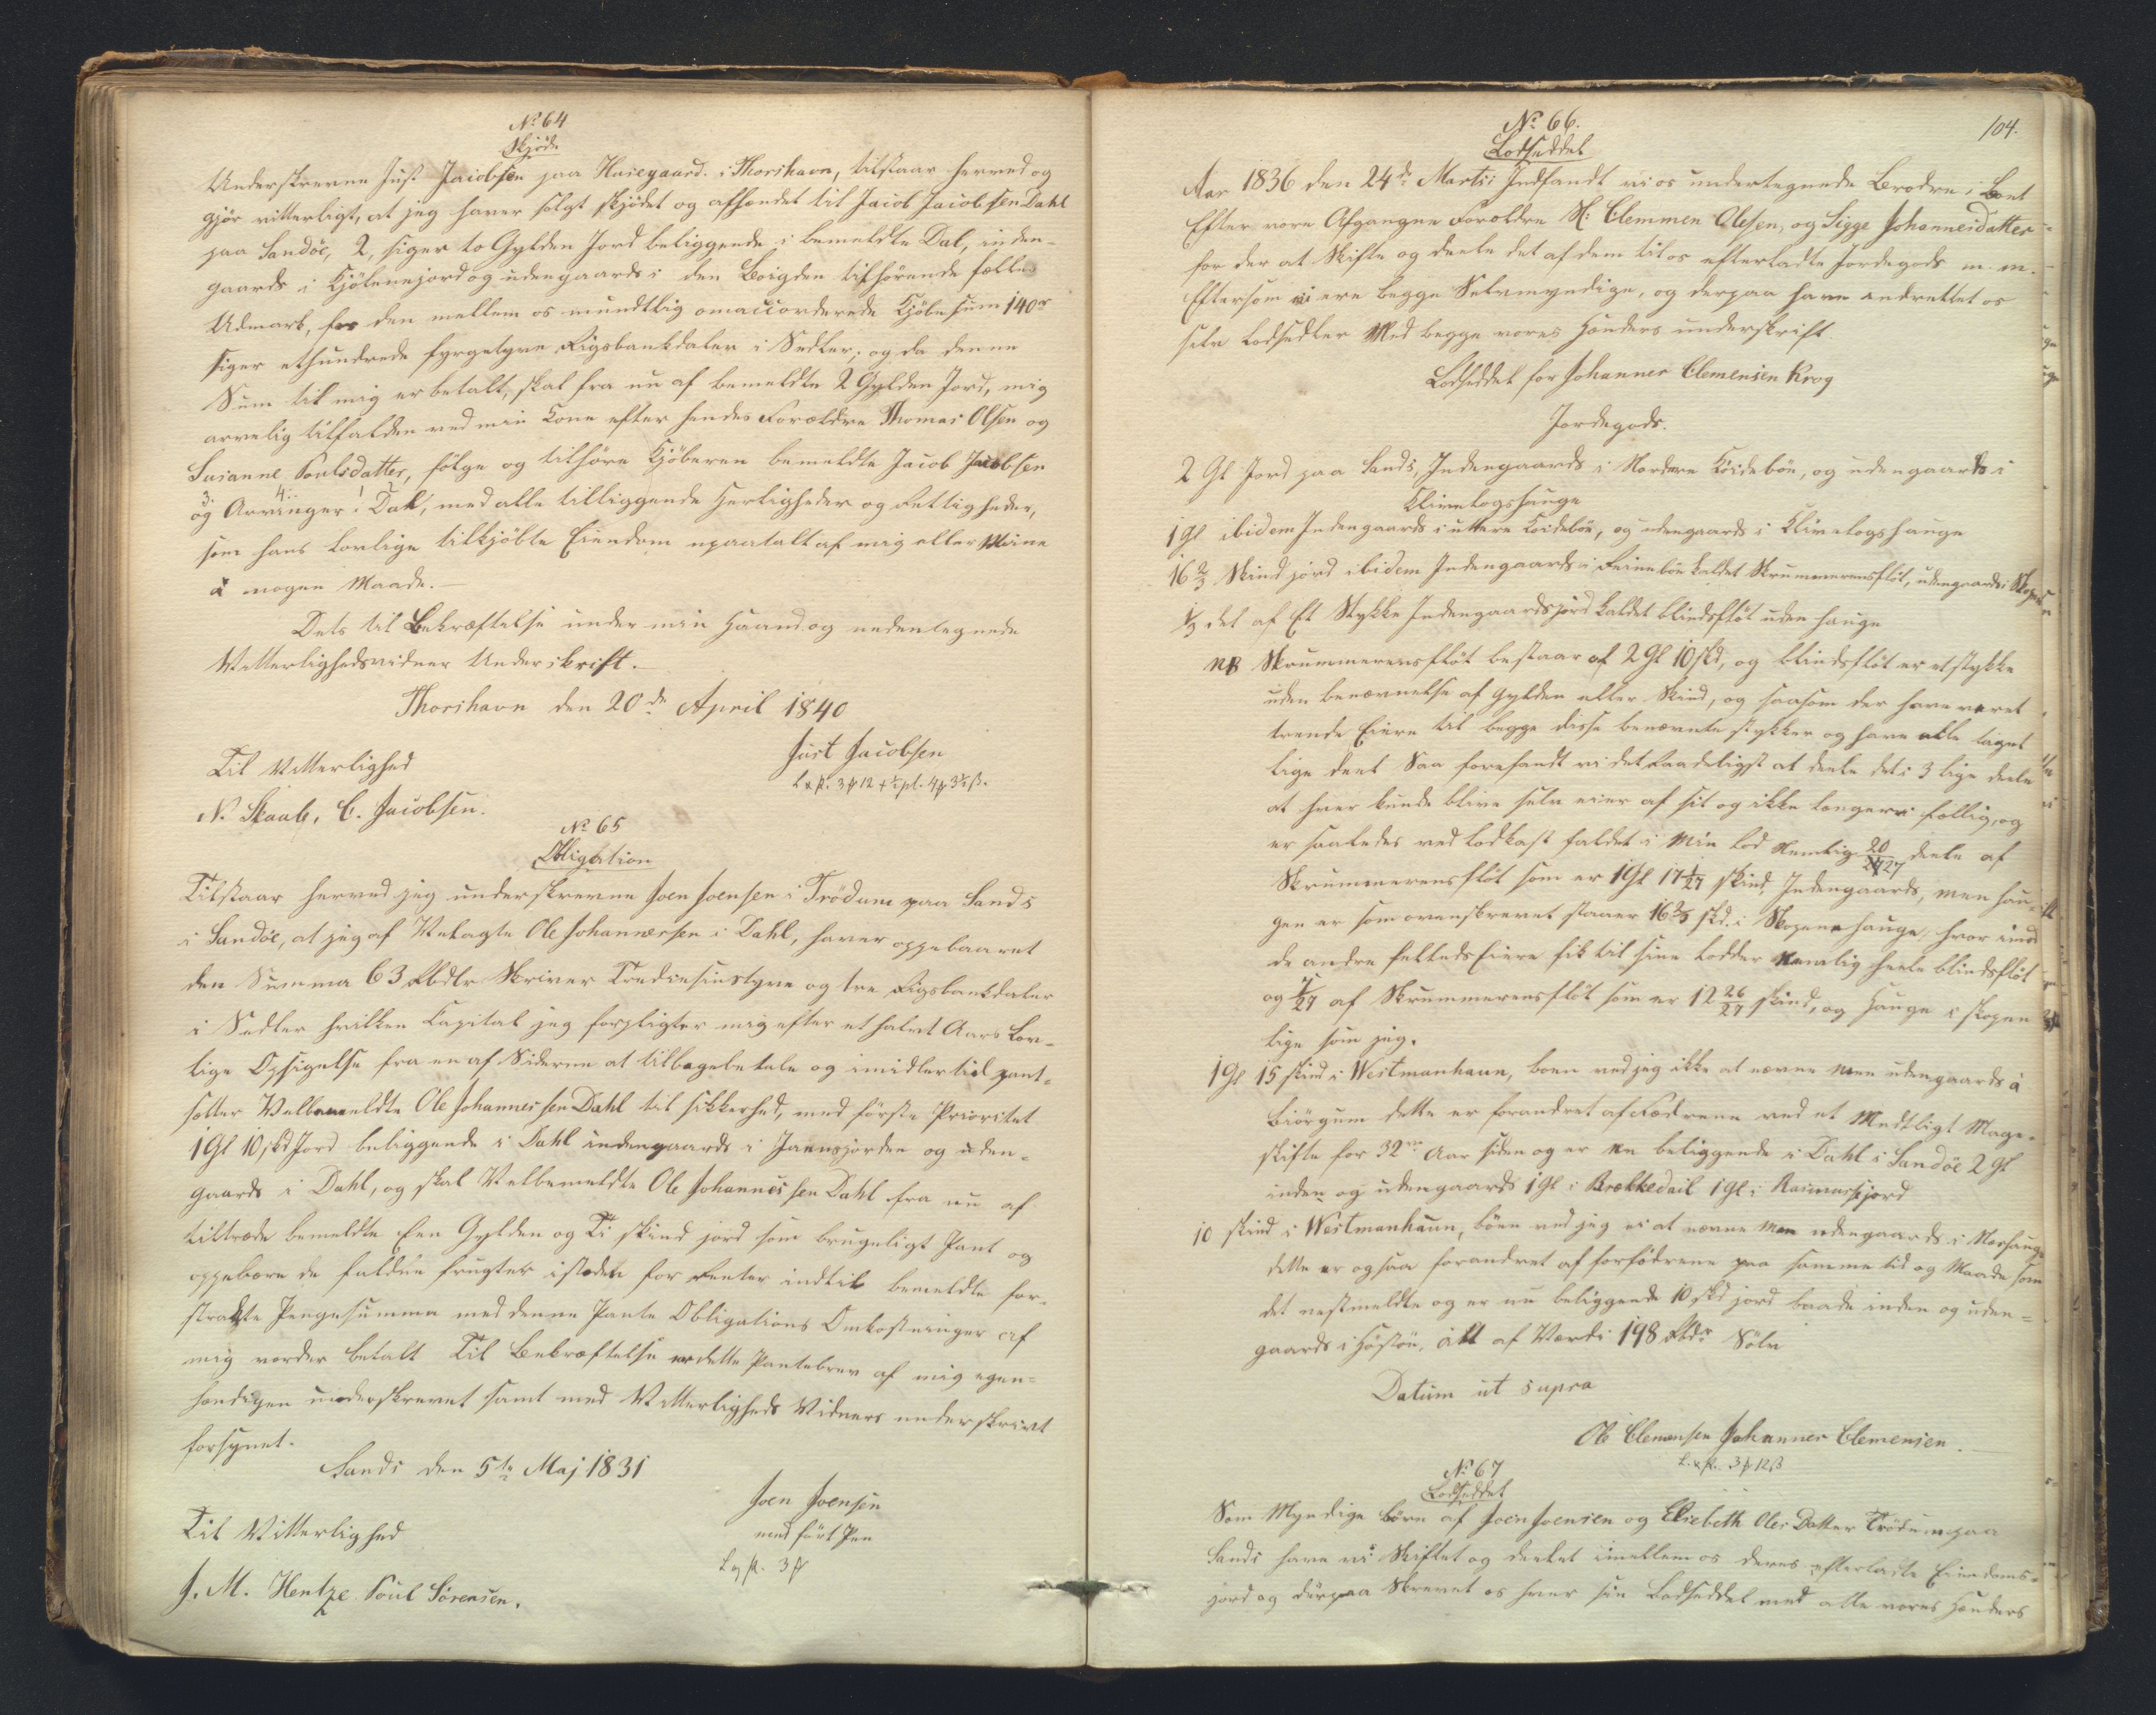 No 64
Skjöde
Underskrevne Just Jacobsen paa Husegaard i Thorshavn, tilstaar herved og
gjör vitterligt, at jeg haver solgt skjödet og afhændet til Jacob Jacobsen Dahl
paa Sandöe, 2, siger to Gylden Jord beliggende i bemeldte Dal, inden-
gaards i Kjölnejord og udengaards i den Boigden tilhörende fælles
Udmark, for den mellem os mundtlig omaccorderede Kjöbesum 140 rd
siger ethundrede fyrgetyve Rigsbankdaler i Sedler; og da denne
Sum til mig er betalt, skal fra nu af bemeldte 2 Gylden Jord, mig
arvelig tilfalden ved min Kone efter hendes Forældre Thomas Olsen og
Susanne Poulsdatter, fölge og tilhöre Kjöberen bemeldte Jacob Jacobsen
og Arvinger i Dal, med alle tilliggende Herligheder og Rettigheder,
som hans lovlige tilkjöbte Eiendom upaatalt af mig eller Mine
i nogen Maade.-
Dets til Bekræftelse under min Haand og nedentegnede
Vitterlighedsvidner Underskrift.-
Thorshavn den 20de April 1840
Just Jacobsen
Til Vitterlighed
N. Skaale, C. Jacobsen.
No 65
Obligation
Tilstaar herved jeg underskrevne Joen Joensen i Trödum paa Sands
i Sandöe, at jeg af Velagte Ole Johannessen i Dahl, haver oppebaaret
den Summa 63 Rbdlr Skriver Tredsindstyve og tre Rigsbankdaler
i Sedler hvilken Capital jeg forpligter mig efter et halvt Aars Lov-
lige Opsigelse fra en af Siderne at tilbagebetale og imidlertid pant-
sætter Velbemeldte Ole Johannessen Dahl til sikkerhed, med förste Prioritet
1 Gl 10 skd Jord beliggende i Dahl indengaards i Jannsjorden og uden-
gaards i Dahl, og skal Velbemeldte Ole Johannessen Dahl fra nu af
tiltræde bemeldte Een Gylden og Ti skind jord som brugeligt Pant og
oppebære de faldne frugter istæden for Renter indtil bemeldte for-
strakte Pengesumma med denne Pante Obligations Omkostninger af
mig vorder betalt Til Bekræftelse er dette Pantebrev af mig egen-
hændigen underskrevet samt med Vitterligheds Vidners underskrivt
forsynet.
Sands den 5te Maj 1831
Joen Joensen
med fört Pen
Til Vitterlighed
J. M. Hentze Poul Sörensen.
No 66.
104.
Lodseddel
Aar 1836 den 24de Martsi Indfandt vi os undertegnede Brødre i Boet
Efter vore Afgangne Forældre Sl: Clemmen Olesen, og Sigge Johannesdatter
for der at Skifte og deele det af dem til os efterladte Jordegods m. m.
Eftersom vi ere begge Selvmyndige, og derpaa have andrettet os
selv Lodsedler Med begge vores Hænders underskrift.
Lodseddel for Johannes Clemensen Krog
Jordegods.
2 Gl Jord paa Sands, Indengaards i Nordere Koidebön, og udengaards i
Klivelogshauge
1 Gl ibidem Indengaards i uttere Koidebön, og udengaards i Klivelogshauge
16 2/3 Skind jord ibidem Indengaards i Reinebön kaldet Skrummerensflöt, udengaards i
1/3 del af Et Stykke Indengaardsjord kaldet blindsflöt uden hauge
NB Skrummerensflöt bestaar af 2 Gl 10 skd, og blindsflöt er et stykke
uden benævnelse af Gylden eller Skind, og saasom der have været
trende Eiere til begge disse benævnte stykker og have alle taget
lige deel Saa forefandt vi det Raadeligst at deele det i 3 lige deele
at hver kunde blive selv eier af sit og ikke længere i fællig, og
er saaledes ved lodkast faldet i Min Lod Nemlig 20/27 deele af
Skrummerensflöt som er 1 Gl 17 1/27 skind, Indengaards, men hau-
gen er som ovenskrevet staaer 16 2/3 skd. i Skopenehauge, hvor imod
de andre fælleds Eiere fik til sine Lodder Nemlig heele blindsflöt
og 7/27 af Skrummerensflöt som er 12 26/27 skind, og Hauge i skopen
lige som jeg.
1 Gl 15 skind i Westmanhavn, boen ved jeg ikke at nævne Men udengaards á
Biörgum dette er forandret af Fædrene ved et Mudtligt Mage-
skifte for 32ve Aar siden og er Nu beliggende i Dahl i Sandöe 2 Gl
inden og udengaards 1 Gl i Brekkedail 1 Gl i Rasmusjord
10 skind i Westmanhaun, böen ved jeg ei at nævne Men udengaards i Norhauge
dette er ogsaa forandret af forfædrene paa samme tid og Maade som
det nestmeldte og er nu beliggende 10 skd jord baade inden og uden-
gaards i Höstön, alt af Værdi 198 Rbdr Sölv
Datum ut supra
Ole Clemensen Johannes Clemensen
No 67
Lodseddel
Som Myndige börn af Joen Joensen og Elsebeth Oles Datter Trödum paa
Sands have vi Skiftet og deelet imellem os deres efterladte Eiendoms-
jord og derpaa Skrevet os hver sin Lodseddel med alle vores Hænders